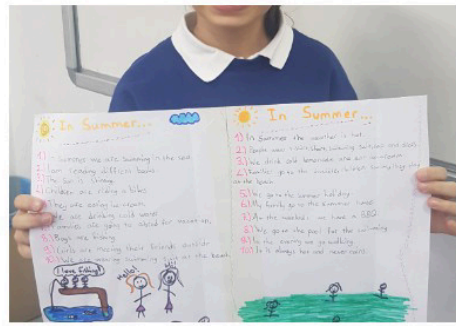 In Summer...
1) In summer we are swimming in the sea.
2) I am reading different books.
3) The sun is shining.
4) Children are riding a bikes.
5) They are eating ice-cream.
6) We are drinking cold water.
7) Families are going to
8) Boys are fishing.
9) Girls are meeting their friends outside.
10) We are wearing swimming suit at the beach.
I love fishing!
Hello!
In Summer...
1) In summer the weather is hot.
2) People wear t-shirt, shorts, swimming suit and
3) We drink cold lemonade and eat ice-cream.
4) Families go to the
at the beach.
5) We go to the summer holiday.
6) My friends go to the summer
7) At the weekends we have a BBQ
8) We go to the pool for the swimming
9) In the evening we go walking.
10) It is always hot and never rains.